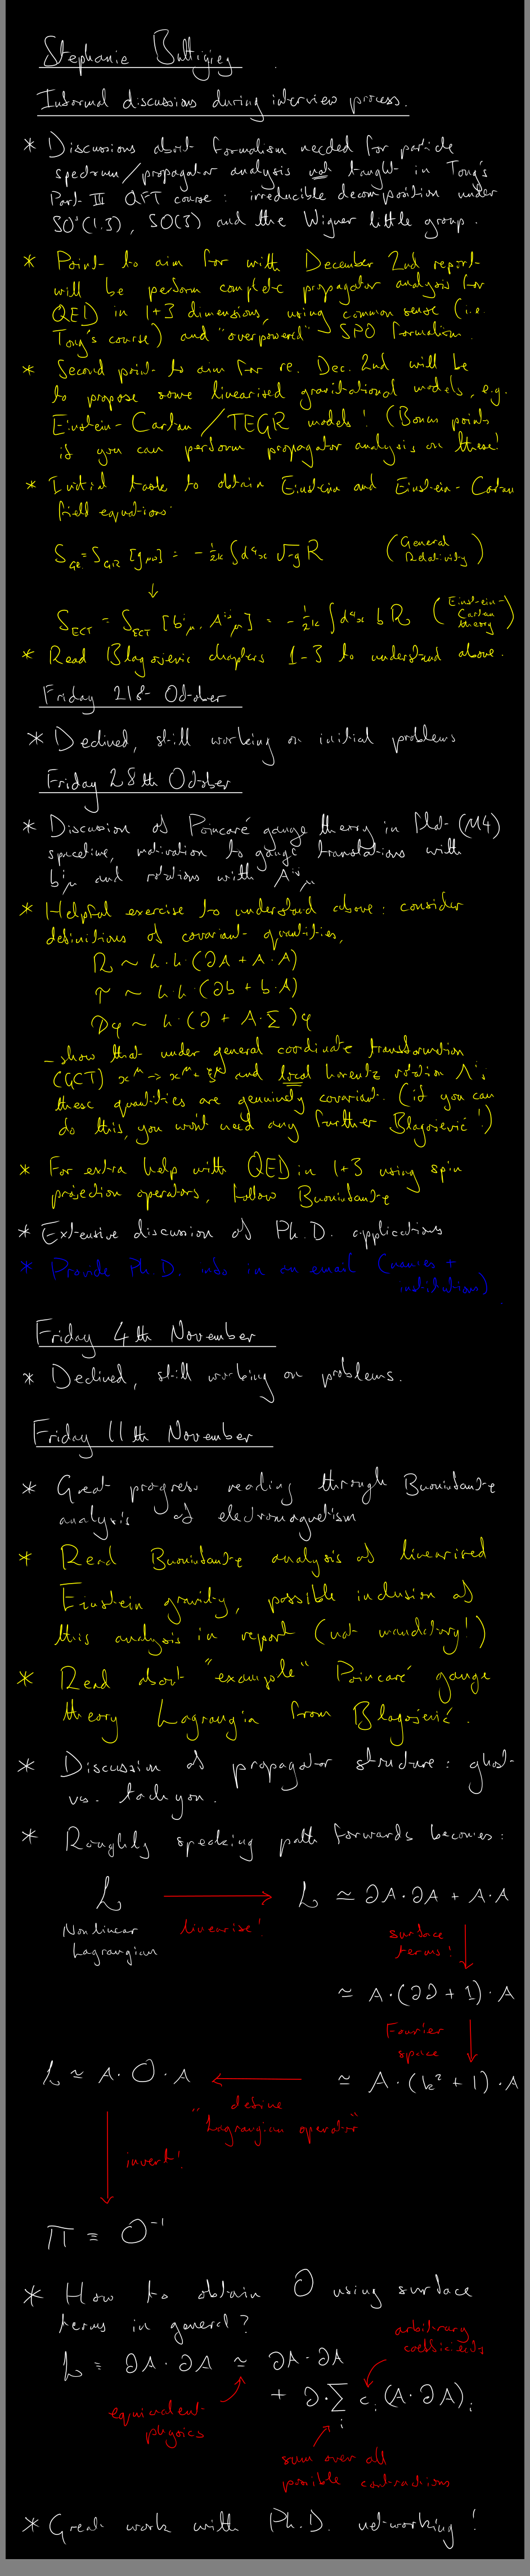 Stephanie Buttigieg
Informal discussions during interview process.
* Discussions about formalism needed for particle
spectrum/propagator analysis not taught in Tong's
Part III QFT course: irreducible decomposition under
SO⁺(1,3), SO(3) and the Wigner little group.
* Point to aim for with December 2nd report
will be perform complete propagator analysis for
QED in 1+3 dimensions, using common sense (i.e.
Tong's course) and "overpowered" SPO formalism.
* Second point to aim for re. Dec. 2nd will be
to propose some linearised gravitational models, e.g.
Einstein-Cartan/TEGR models! (Bonus points
if you can perform propagator analysis on these!
* Initial task to obtain Einstein and Einstein-Cartan
field equations:
S_GR = S_GR [g_μν] = -1/2κ ∫d⁴x √-g R (General Relativity)
↓
S_ECT = S_ECT [b^i_μ, A^ij_μ] = -1/2κ ∫d⁴x b R (Einstein-Cartan theory)
* Read Blagojević chapters 1-3 to understand above.
Friday 21st October
* Declined, still working on initial problems
Friday 28th October
* Discussion of Poincaré gauge theory in flat (M4)
spacetime, motivation to gauge translations with
b^i_μ and rotations with A^ij_μ
* Helpful exercise to understand above: consider
definitions of covariant quantities,
R ~ h·h·(∂A + A·A)
T ~ h·h·(∂b + b·A)
Dφ ~ h·(∂ + A·Σ)φ
- show that under general coordinate transformation
(GCT) x^μ → x^μ + ξ^μ and local Lorentz rotation Λ^i_j
these quantities are genuinely covariant. (if you can
do this, you won't need any further Blagojević!)
* For extra help with QED in 1+3 using spin
projection operators, follow Buoninfante
* Extensive discussion of Ph.D. applications
* Provide Ph.D. info in an email (names +
institution)
Friday 4th November
* Declined, still working on problems.
Friday 11th November
* Great progress reading through Buoninfante
analysis of electromagnetism
* Read Buoninfante analysis of linearised
Einstein gravity, possible inclusion of
this analysis in report (not mandatory!)
* Read about "example" Poincaré gauge
theory Lagrangia from Blagojević.
* Discussion of propagator structure: ghost
vs. tachyon.
* Roughly speaking path forwards becomes:
L → L ≃ ∂A·∂A + A·A
Nonlinear Lagrangian
linearise!
surface terms!
≃ A·(∂∂ + 1)·A
Fourier space
L ≃ A·O·A ← ≃ A·(k² + 1)·A
"define Lagrangian operator"
invert!
Π = O⁻¹
* How to obtain O using surface
terms in general?
arbitrary coefficients
L = ∂A·∂A ≃ ∂A·∂A
+ ∂·∑_i c_i (A·∂A)_i
equivalent physics
sum over all
possible contractions
* Great work with Ph.D. networking!